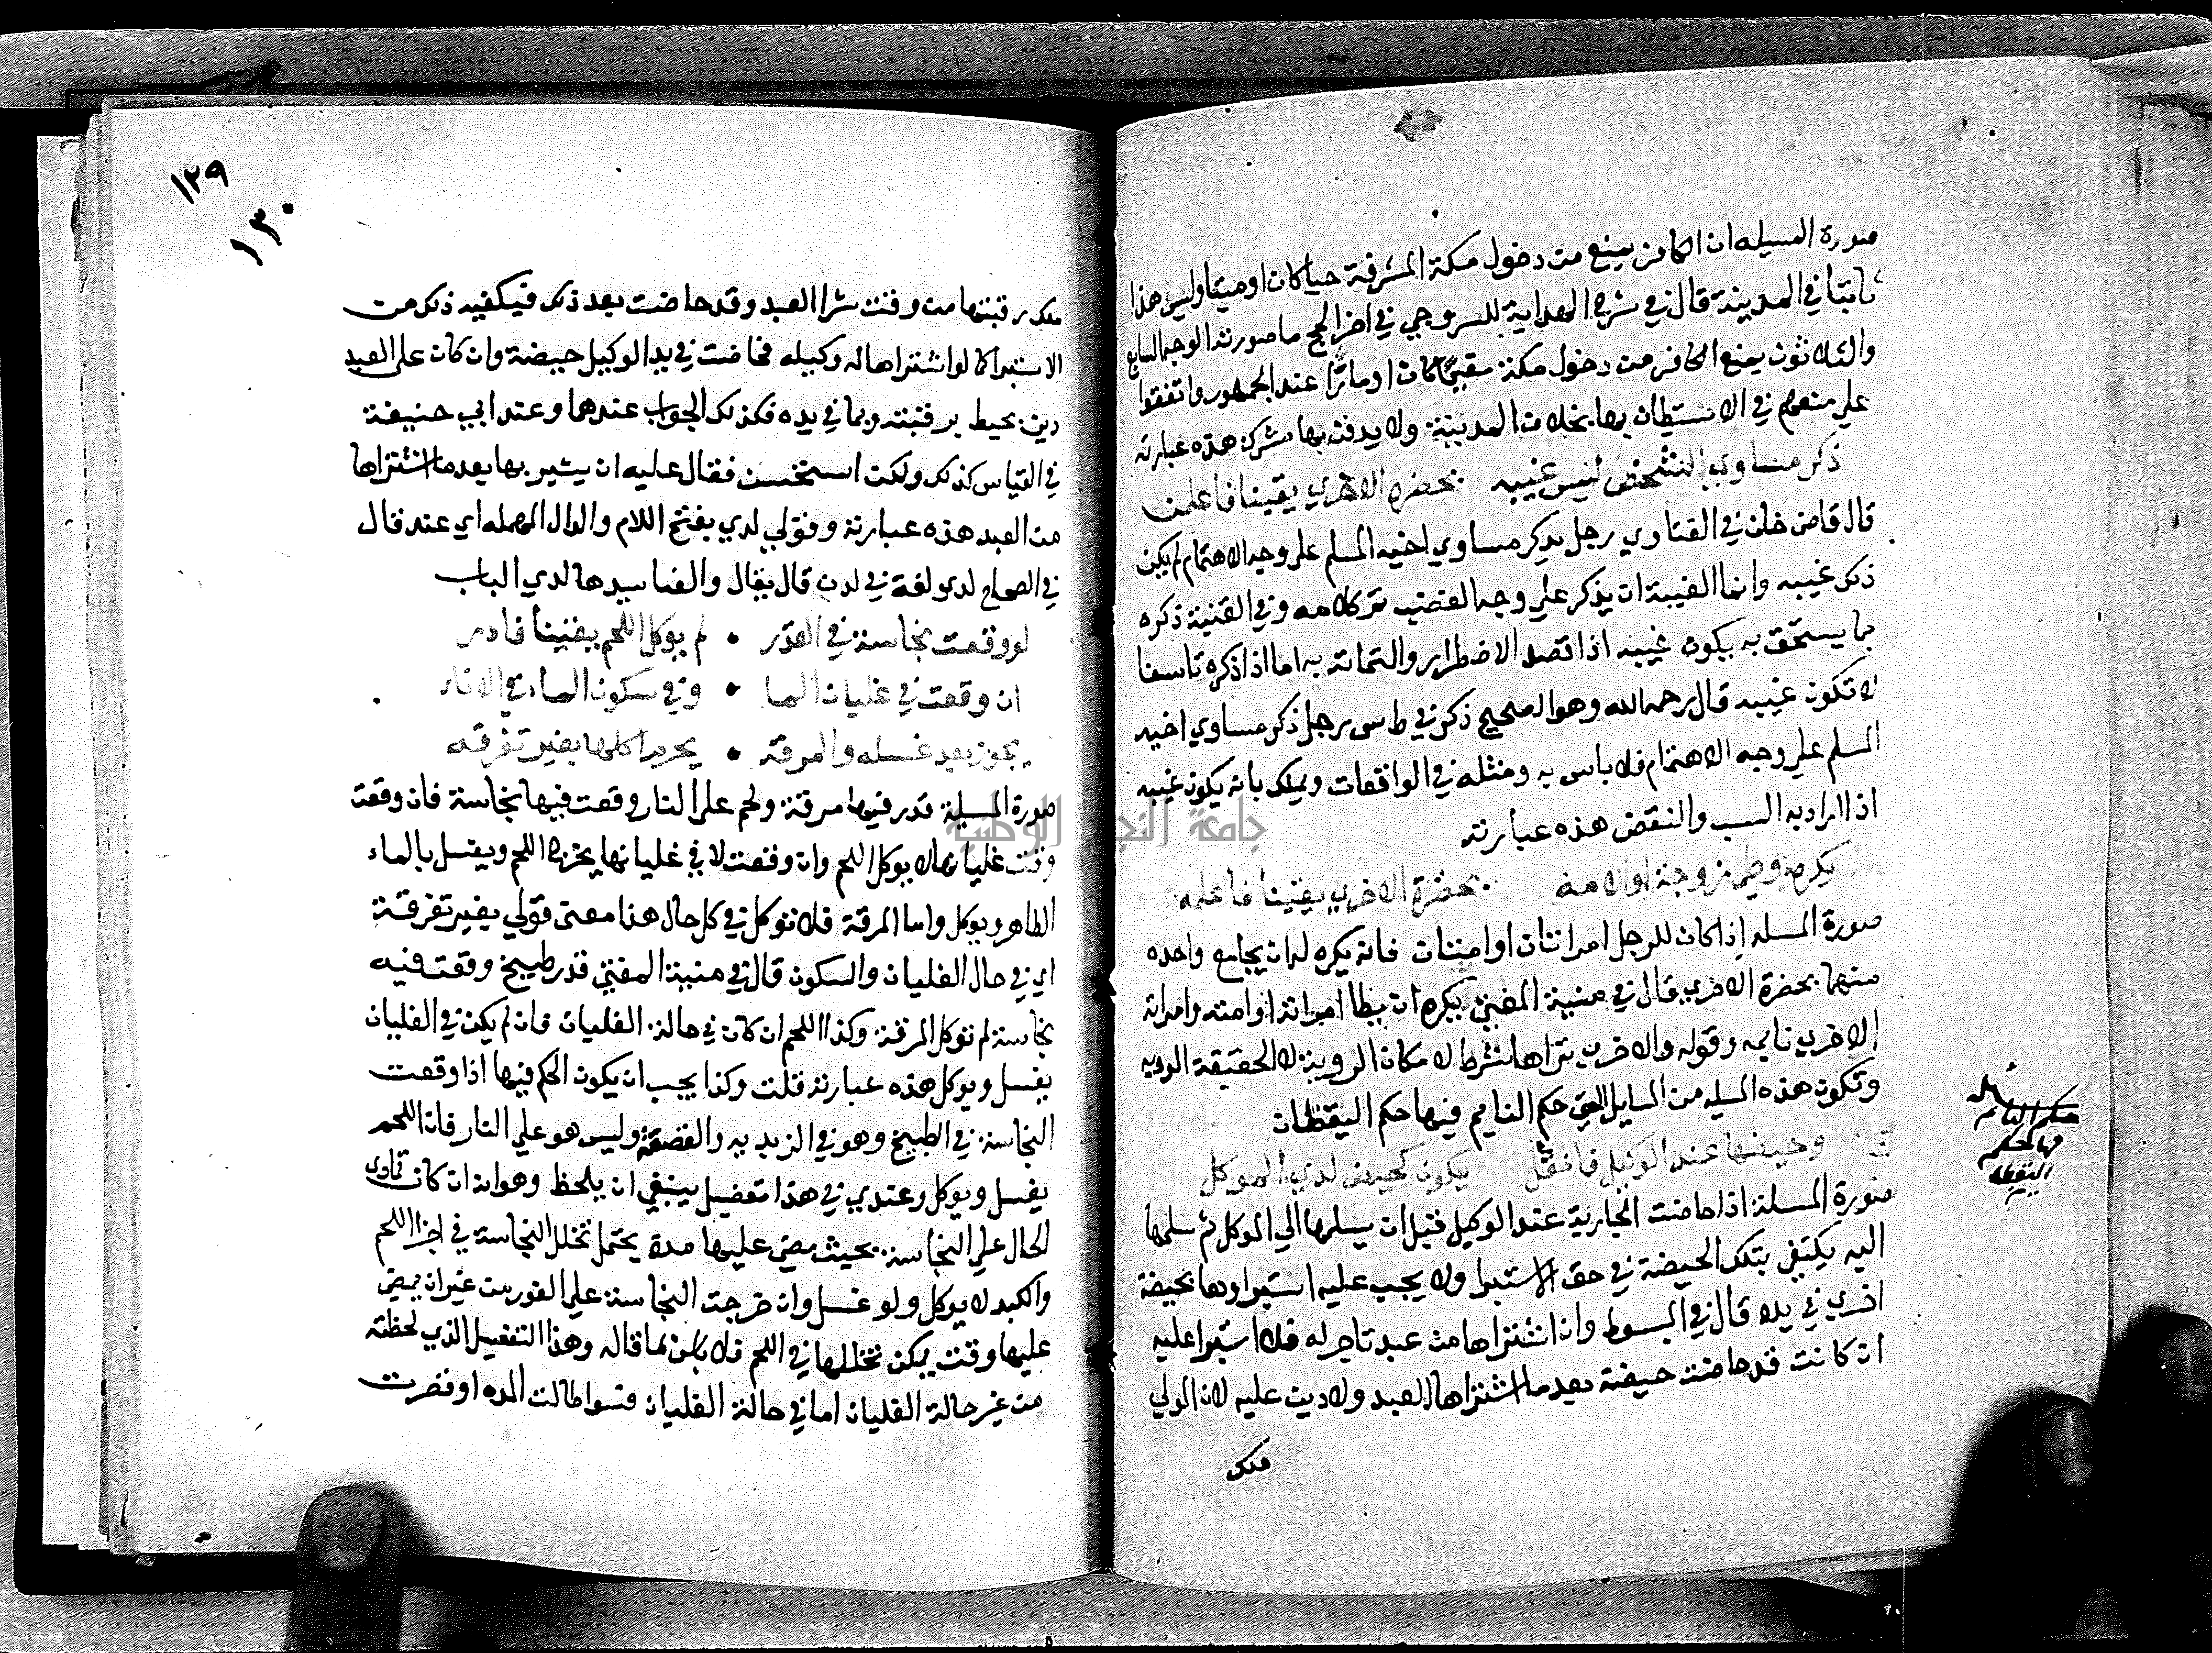 صورة المسيله ان الكافر يمنع من دخول مكة المشرفة حيا كان او ميتا وليس هذا
ثابتا في المدينة قال في شرح الهداية للسروجي في اخر الحج ما صورته الوجه السابع
والثلاثون يمنع الكافر من دخول مكة مقيما كان او مارا عند الجمهور واتفقوا
علي منعهم في الاستيطان بها بخلاف المدينة ولا يدفن بها مشرك هذه عبارته
ذكر مساوي الشخص ليس غيبه
قال قاضي خان في الفتاوي رجل يذكر مساوي اخيه المسلم علي وجه الاهتمام لم يكن
ذلك غيبه وانما الغيبة ان يذكر علي وجه الغضب تم كلامه وفي القنية ذكره
بما يستحق به يكون غيبه اذا قصد الاضطرار والشماتة به اما اذا ذكره تاسفا
لا تكون غيبه قال رحمه الله وهو الصحيح ذكر في ط س رجل ذكر مساوي اخيه
المسلم علي وجه الاهتمام فلا باس به ومثله في الواقعات ويملك بانه يكون غيبه
اذا اراد به السب والنقص هذه عبارته
يكره وطي زوجة او الامه بحضرة الاخري يقينا فاعلمه
صورة المسله اذا كان للرجل امراتان او امتان فانه يكره له ان يجامع واحده
منهما بحضرة الاخري قال في منية المفتي يكره ان يطا امراته او امته وامراته
الاخري نايمه وقوله والاخري يتراها شرط لا مكان الروية لا لحقيقة الرويه
وتكون هذه المسيله من المسايل التي حكم النايم فيها حكم اليقظان
وحيضها عند الوكيل فانقل يكون كحيض لدي الموكل
صورة المسلة اذا حاضت الجارية عند الوكيل قبل ان يسلمها الي الموكل ثم سلمها
اليه يكتفي بتلك الحيضة في حق الاستبرا ولا يجب عليه استبراوها بحيضة
اخري في يده قال في المبسوط وان اشتراها من عبد تاجر له فلا استبرا عليه
ان كانت قد حاضت حيضة بعد ما اشتراها العبد ولا دين عليه لان المولي
ملك
حكم النائم
فيها حكم
اليقظه
١٢٩
١٣٠
ملك رقبتها من وقت شرا العبد وقد حاضت بعد ذلك فيكفيه ذلك من
الاستبرا كما لو اشتراها له وكيله فحاضت في يد الوكيل حيضة وان كان علي العبد
دين يحيط برقبته وبما في يده فكذلك الجواب عندهما وعند ابي حنيفة
في القياس كذلك ولكن استحسن فقال عليه ان يستبر بها بعد ما اشتراها
من العبد هذه عبارته وقولي لدي بفتح اللام والدال المهمله اي عند قال
في الصحاح لدي لغة في لدن قال يقال والفيا سيدها لدي الباب
لو وقعت نجاسة في القدر • لم يوكل اللحم يقينا فادر
ان وقعت في غليان الما • وفي سكون الما في الاناء
يجوز بعد غسله والمرقه • يحرم اكلها بغير تفرقه
صورة المسيلة قدر فيها مرقة ولحم علي النار وقعت فيها نجاسة فان وقعت
وقت غليانها لا يوكل اللحم وان وقعت لا في غليانها يخرج اللحم ويغسل بالماء
الطاهر ويوكل واما المرقة فلا توكل في كل حال هذا معني قولي بغير تفرقة
اي في حال الغليان والسكون قال في منية المفتي قدر طبيخ وقعت فيه
نجاسة لم توكل المرقة وكذا اللحم ان كان في حالة الغليان فان لم يكن في الغليان
يغسل ويوكل هذه عبارته قلت وكذا يجب ان يكون الحكم فيها اذا وقعت
النجاسة في الطبيخ وهو في الزبديه والقصعة وليس هو علي النار فان اللحم
يغسل ويوكل وعندي في هذا تفصيل ينبغي ان يلحظ وهو انه ان كان تمادي
الحال علي النجاسة بحيث مضي عليها مدة يحتمل تخلل النجاسة في اجزا اللحم
والكبد لا يوكل ولو غسل وان خرجت النجاسة علي الفور من غير ان يمضي
عليها وقت يمكن تخللها في اللحم فلا باس لما قاله وهذا التفصيل الذي لحظته
من غير حالة الغليان اما في حالة الغليان فسوا طالت المده او قصرت
جامعة النجاح الوطنية